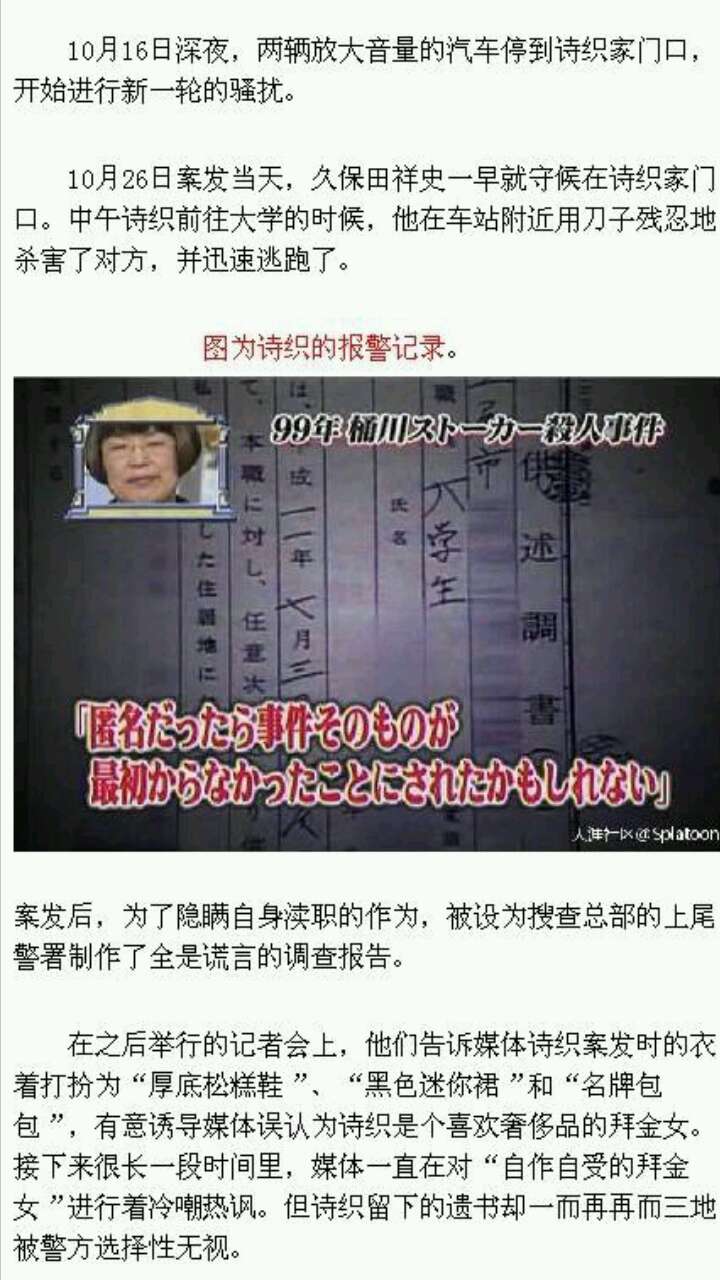 10月16日深夜，两辆放大音量的汽车停到诗织家门口，
开始进行新一轮的骚扰。
10月26日案发当天，久保田祥史一早就守候在诗织家门
口。中午诗织前往大学的时候，他在车站附近用刀子残忍地
杀害了对方，并迅速逃跑了。
图为诗织的报警记录。
99年 桶川ストーカー殺人事件
供述調書
市
職
大学生
氏名
は、平成一一年七月三
て、本職に対し、任意次
した住居地に
「匿名だったら事件そのものが
最初からなかったことにされたかもしれない」
天涯社区@Splatoon
案发后，为了隐瞒自身渎职的作为，被设为搜查总部的上尾
警署制作了全是谎言的调查报告。
在之后举行的记者会上，他们告诉媒体诗织案发时的衣
着打扮为“厚底松糕鞋”、“黑色迷你裙”和“名牌包
包”，有意诱导媒体误认为诗织是个喜欢奢侈品的拜金女。
接下来很长一段时间里，媒体一直在对“自作自受的拜金
女”进行着冷嘲热讽。但诗织留下的遗书却一而再再而三地
被警方选择性无视。